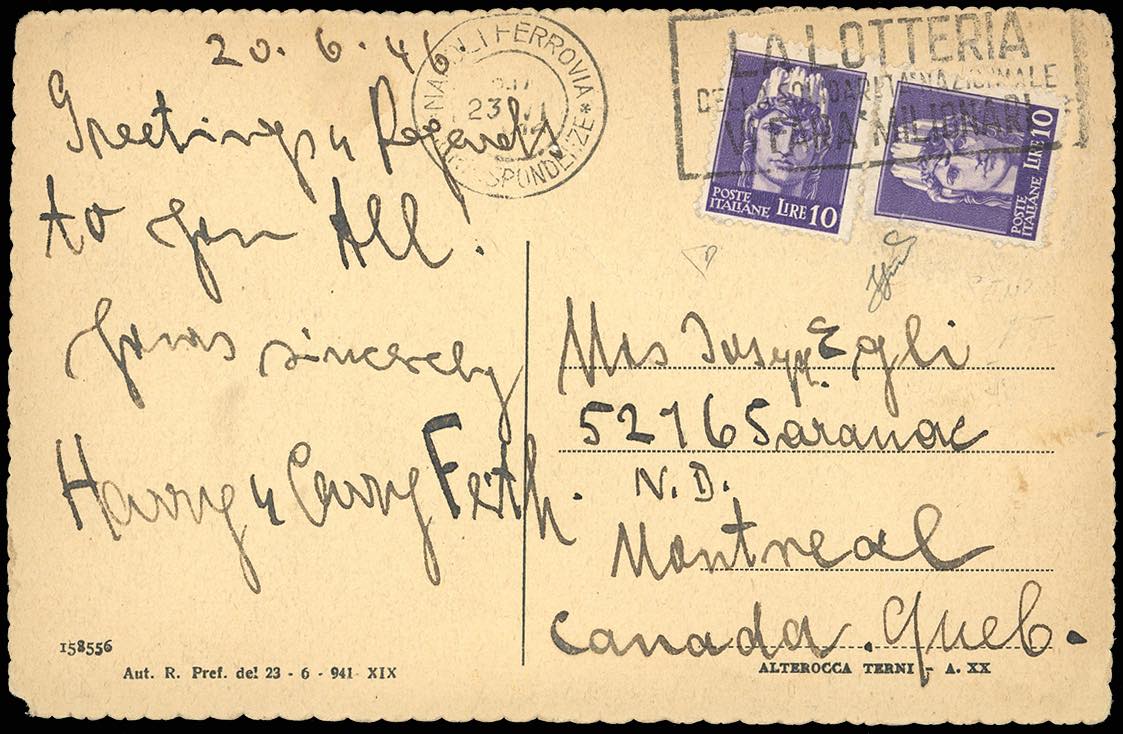 20. 6. 46
Greetings & Regards
to you All!
Yours sincerely
Harry & Carry Feith.
158556
Aut. R. Pref. del 23 - 6 - 941 XIX
NAPOLI FERROVIA *
CORRISPONDENZE
23 VI
LA LOTTERIA
DELLA SOLIDARIETA NAZIONALE
VI FARA' MILIONARI
POSTE
ITALIANE LIRE 10
POSTE
ITALIANE LIRE 10
Mrs Joseph Egli
5276 Saranac
N. D.
Montreal
Canada. Queb.
ALTEROCCA TERNI - A. XX